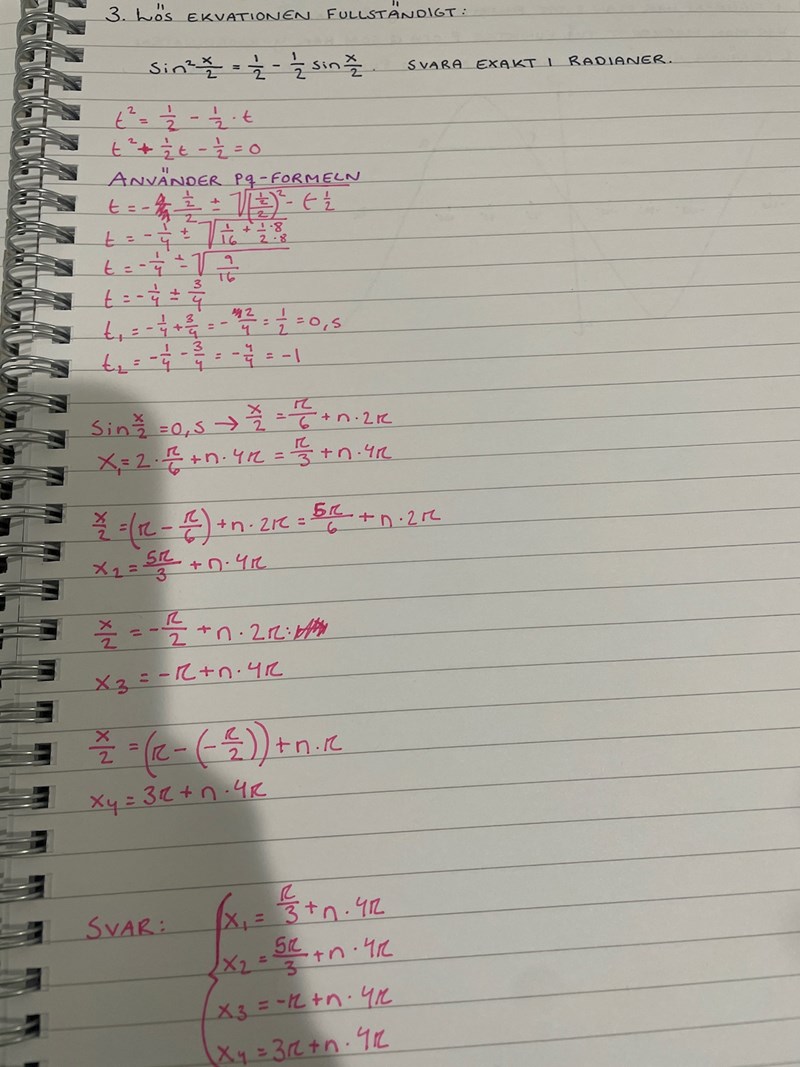 3. LÖS EKVATIONEN FULLSTÄNDIGT:
Sin² x/2 = 1/2 - 1/2 sin x/2. SVARA EXAKT I RADIANER.
t² = 1/2 - 1/2 · t
t² + 1/2 t - 1/2 = 0
ANVÄNDER PQ-FORMELN
t = - (1/2)/2 ± √((1/2)/2)² - (- 1/2
t = - 1/4 ± √(1/16 + 1·8/2·8)
t = - 1/4 ± √(9/16)
t = - 1/4 ± 3/4
t₁ = - 1/4 + 3/4 = - 2/4 = 1/2 = 0,5
t₂ = - 1/4 - 3/4 = - 4/4 = -1
Sin x/2 = 0,5 → x/2 = π/6 + n · 2π
x₁ = 2 · π/6 + n · 4π = π/3 + n · 4π
x/2 = (π - π/6) + n · 2π = 5π/6 + n · 2π
x₂ = 5π/3 + n · 4π
x/2 = - π/2 + n · 2π
x₃ = -π + n · 4π
x/2 = (π - (- π/2)) + n · π
x₄ = 3π + n · 4π
SVAR: { x₁ = π/3 + n · 4π
x₂ = 5π/3 + n · 4π
x₃ = -π + n · 4π
x₄ = 3π + n · 4π